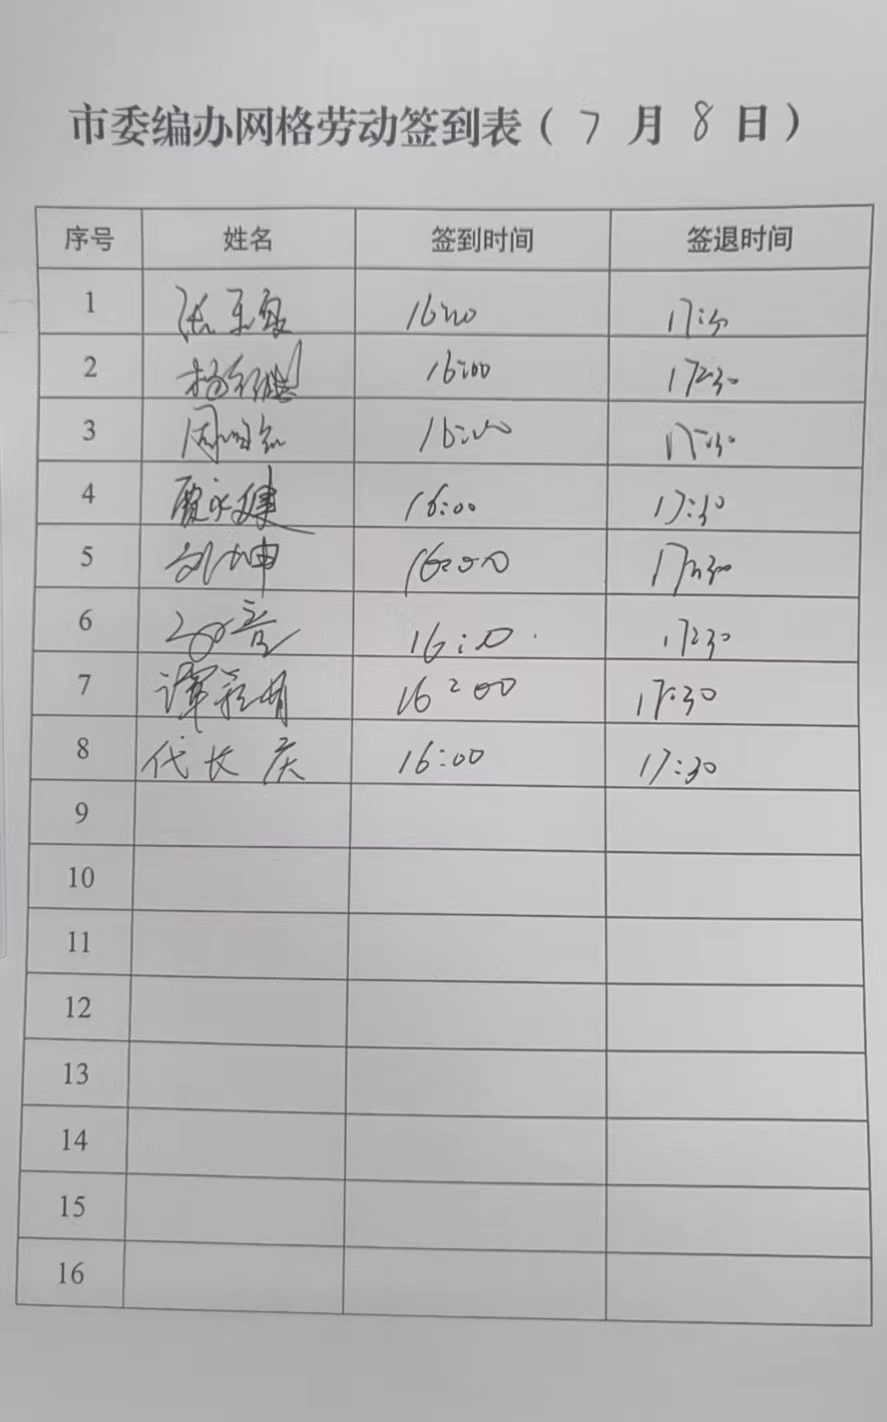 市委编办网格劳动签到表（7月8日）
序号 姓名 签到时间 签退时间
1 张 16:00 17:30
2 杨 16:00 17:30
3 周 16:00 17:30
4 贾永建 16:00 17:30
5 刘坤 16:00 17:30
6 16:00 17:30
7 谭 16:00 17:30
8 代长庆 16:00 17:30
9
10
11
12
13
14
15
16